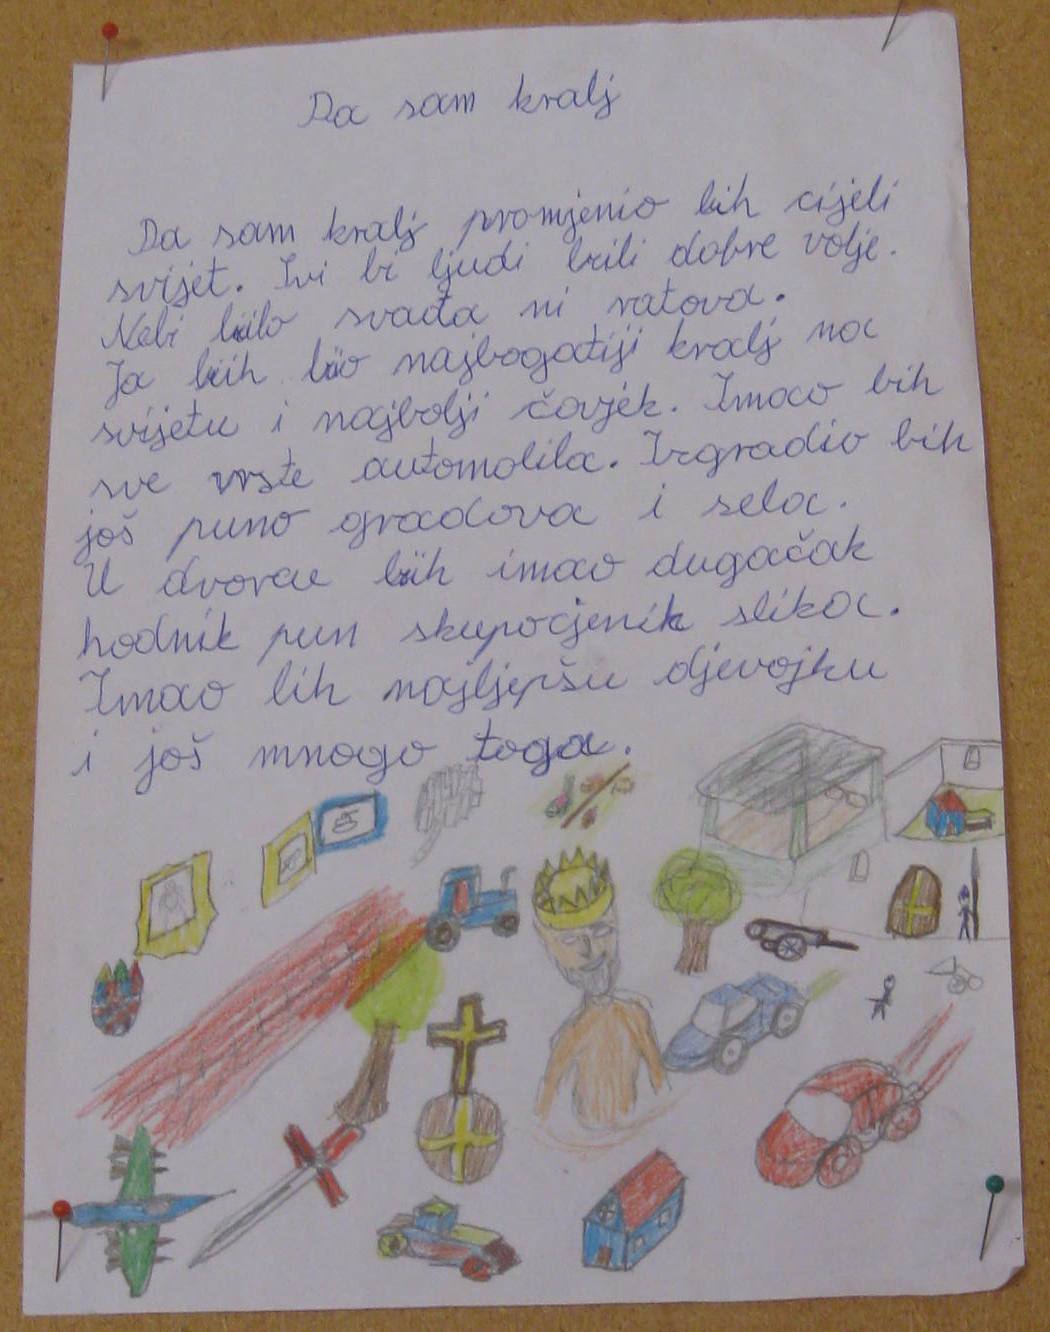 Da sam kralj
Da sam kralj promjenio bih cijeli
svijet. Svi bi ljudi bili dobre volje.
Nebi bilo svađa ni ratova.
Ja bih bio najbogatiji kralj na
svijetu i najbolji čovjek. Imao bih
sve vrste automobila. Izgradio bih
još puno gradova i sela.
U dvorcu bih imao dugačak
hodnik pun skupocjenih slika.
Imao bih najljepšu djevojku
i još mnogo toga.